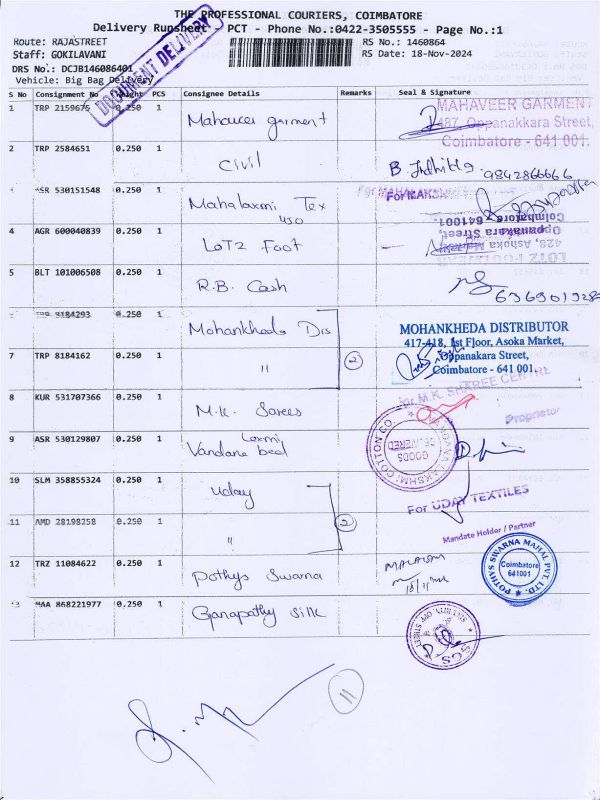 THE PROFESSIONAL COURIERS, COIMBATORE
Delivery Runsheet - PCT - Phone No.:0422-3505555 - Page No.:1
Route: RAJASTREET RS No.: 1460864
Staff: GOKILAVANI RS Date: 18-Nov-2024
DRS No.: DCJB146086401
Vehicle: Big Bag Delivery
DOCUMENT DELIVERY
S No Consignment No Weight PCS Consignee Details Remarks Seal & Signature
1 TRP 2159675 0.250 1 Mahaveer garment
MAHAVEER GARMENT
487, Oppanakkara Street,
Coimbatore - 641 001.
2 TRP 2584651 0.250 1 Civil
9842866666
3 ASR 530151548 0.250 1 Mahalaxmi Tex
For MAHA
4 AGR 600040839 0.250 1 LOTZ Foot
LOTZ FOOTWEAR
428, Ashoka
Oppanakara Street,
Coimbatore - 641001.
5 BLT 101006508 0.250 1 R.B. Cash
0.250 1 Mohankheda Dis
MOHANKHEDA DISTRIBUTOR
417-418, 1st Floor, Asoka Market,
Oppanakara Street,
Coimbatore - 641 001.
7 TRP 8184162 0.250 1 "
2
8 KUR 531707366 0.250 1 M.K. Sarees
For M.K. SHAREE CENTRE
Proprietor
9 ASR 530129807 0.250 1 Laxmi
Vandana bed
VANDANA LAKSHMI COTTON CO.
GOODS
DELIVERED
10 SLM 358855324 0.250 1 Uday
For UDAY TEXTILES
11 AMD 28198258 0.250 1 "
2
Mandate Holder / Partner
12 TRZ 11084622 0.250 1 Pothys Swarna
POTHYS SWARNA MAHAL PVT. LTD.
Coimbatore
641001
13 MAA 868221977 0.250 1 Ganapathy Silk
SGS
11